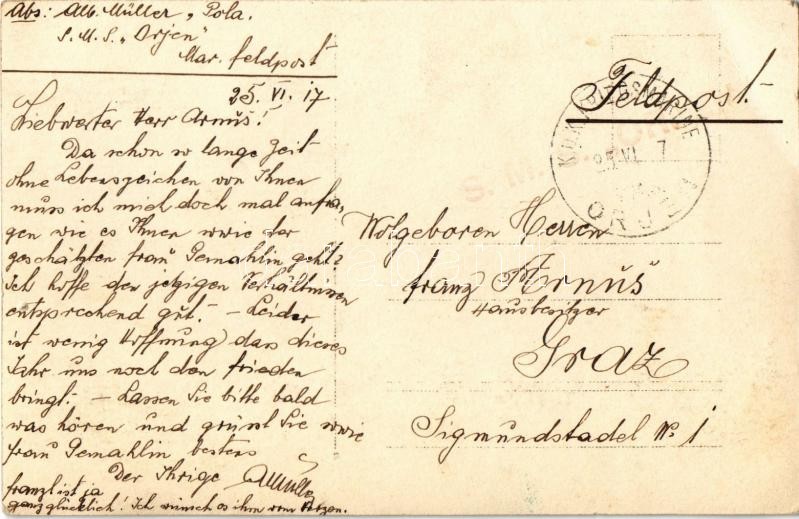 Abs: Alb. Müller, Pola.
S.M.S. „Orjen"
Mar. feldpost
25. VI. 17.
Liebwerter Herr Arnuš!
Da schon so lange Zeit
ohne Lebenszeichen von Ihnen
muss ich mich doch mal anfra-
gen wie es Ihnen sowie der
geschätzten frau Gemahlin geht?
Ich hoffe den jetzigen Verhältnissen
entsprechend gut. – Leider
ist wenig Hoffnung das dieses
Jahr uns noch den frieden
bringt. – Lassen Sie bitte bald
was hören und grüsst Sie sowie
frau Gemahlin bestens
Der Ihrige AMüller
franzl ist ja
ganz glücklich! Ich wünsch es ihm vom Herzen.
Feldpost.
K.U.K. KRIEGSMARINE
25 VI 7
ORJEN
S. M. S.
Wolgeboren Herren
franz Arnuš
Hausbesitzer
Graz
Sigmundstadel Nº 1